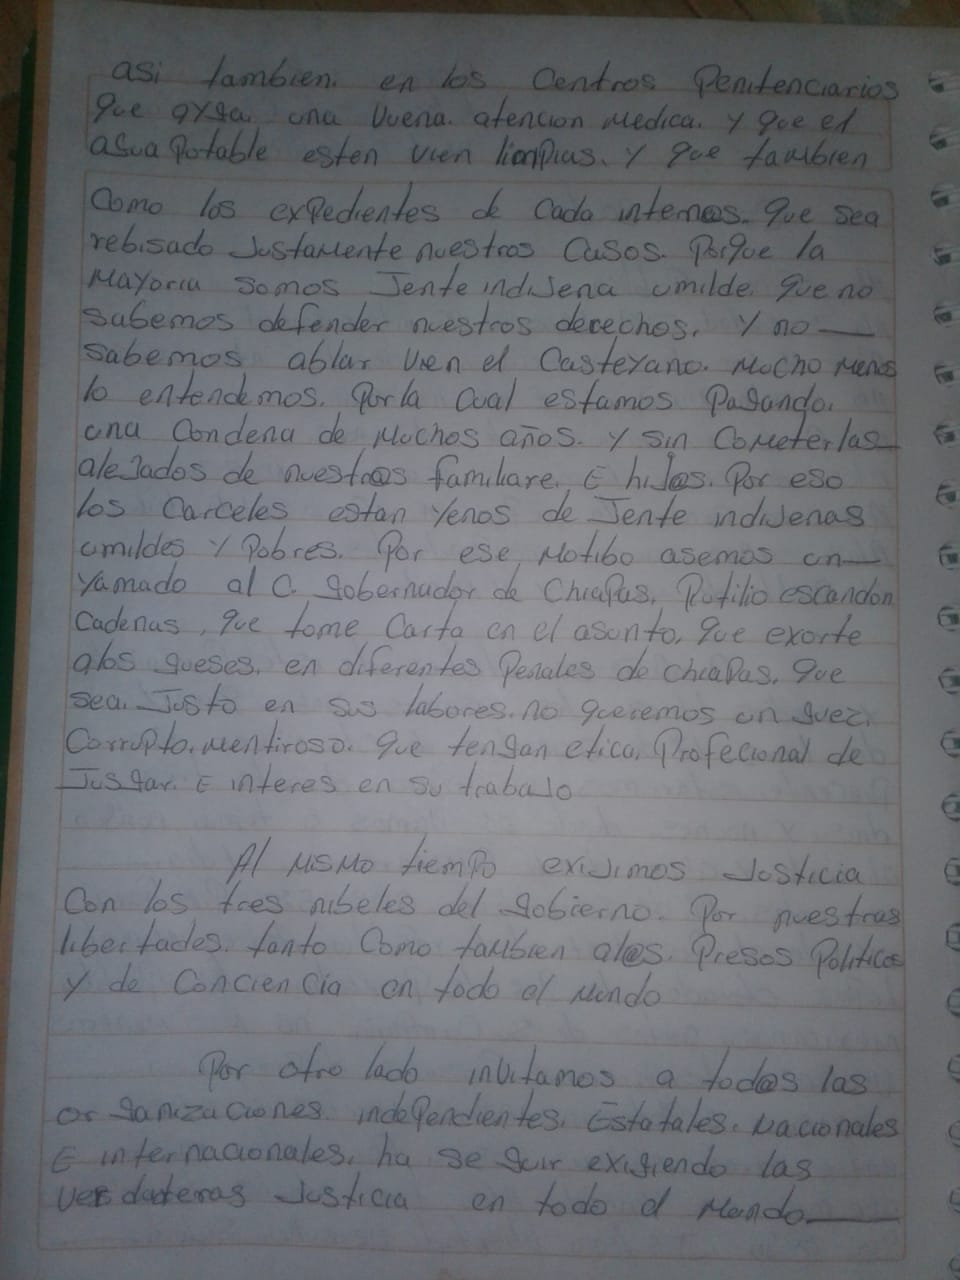 asi tambien. en los Centros Penitenciarios
que ayga. una buena. atencion Medica. y que el
agua Potable esten vien limpias. Y que tambien
Como los expedientes de Cada intern@s. que sea
rebisado Justamente nuestros Casos. Porque la
Mayoria Somos Jente indiJena umilde. que no
Sabemos defender nuestros derechos. Y no
Sabemos ablar vien el Casteyano. Mucho Menos
lo entendemos. Por la Cual estamos Pagando.
una Condena de Muchos años. Y Sin Cometerlas
aleJados de nuestr@s familiare. E hiJ@s. Por eso
los Carceles estan Yenos de Jente indiJenas
umildes Y Pobres. Por ese Motibo asemos un
Yamado al C. gobernador de Chiapas, Rutilio escandón
Cadenas, que tome Carta en el asunto, que exorte
alos gueses. en diferentes Penales de chiapas. que
sea. Justo en sus labores. no queremos un guez.
Corrupto. mentiroso. que tengan etica, Profecional de
Jusgar. E interes en su trabaJo
Al MisMo tiempo exiJimos Justicia
Con los tres nibeles del gobierno. Por nuestras
libertades. tanto Como tambien al@s. Presos Politicos
Y de Conciencia en todo el Mundo
Por otro lado invitamos a tod@s las
organizaciones independientes. Estatales. Nacionales
E internacionales. ha seguir exigiendo las
verdaderas Justicia en todo el Mundo